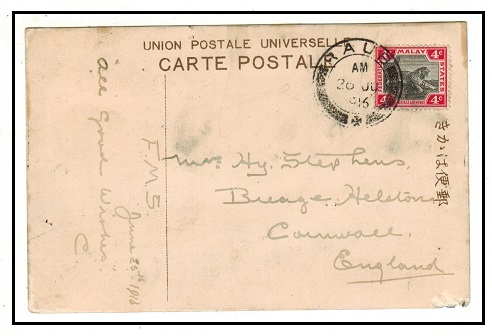 UNION POSTALE UNIVERSELLE
CARTE POSTALE
RAUB
AM
26 JU
916
4c MALAY 4c
FEDERATED STATES
4c 4c
きかは便郵
All Good Wishes
C
F.M.S.
June 25th 1916
Mrs Hy. Stephens,
Breage Helston
Cornwall.
England